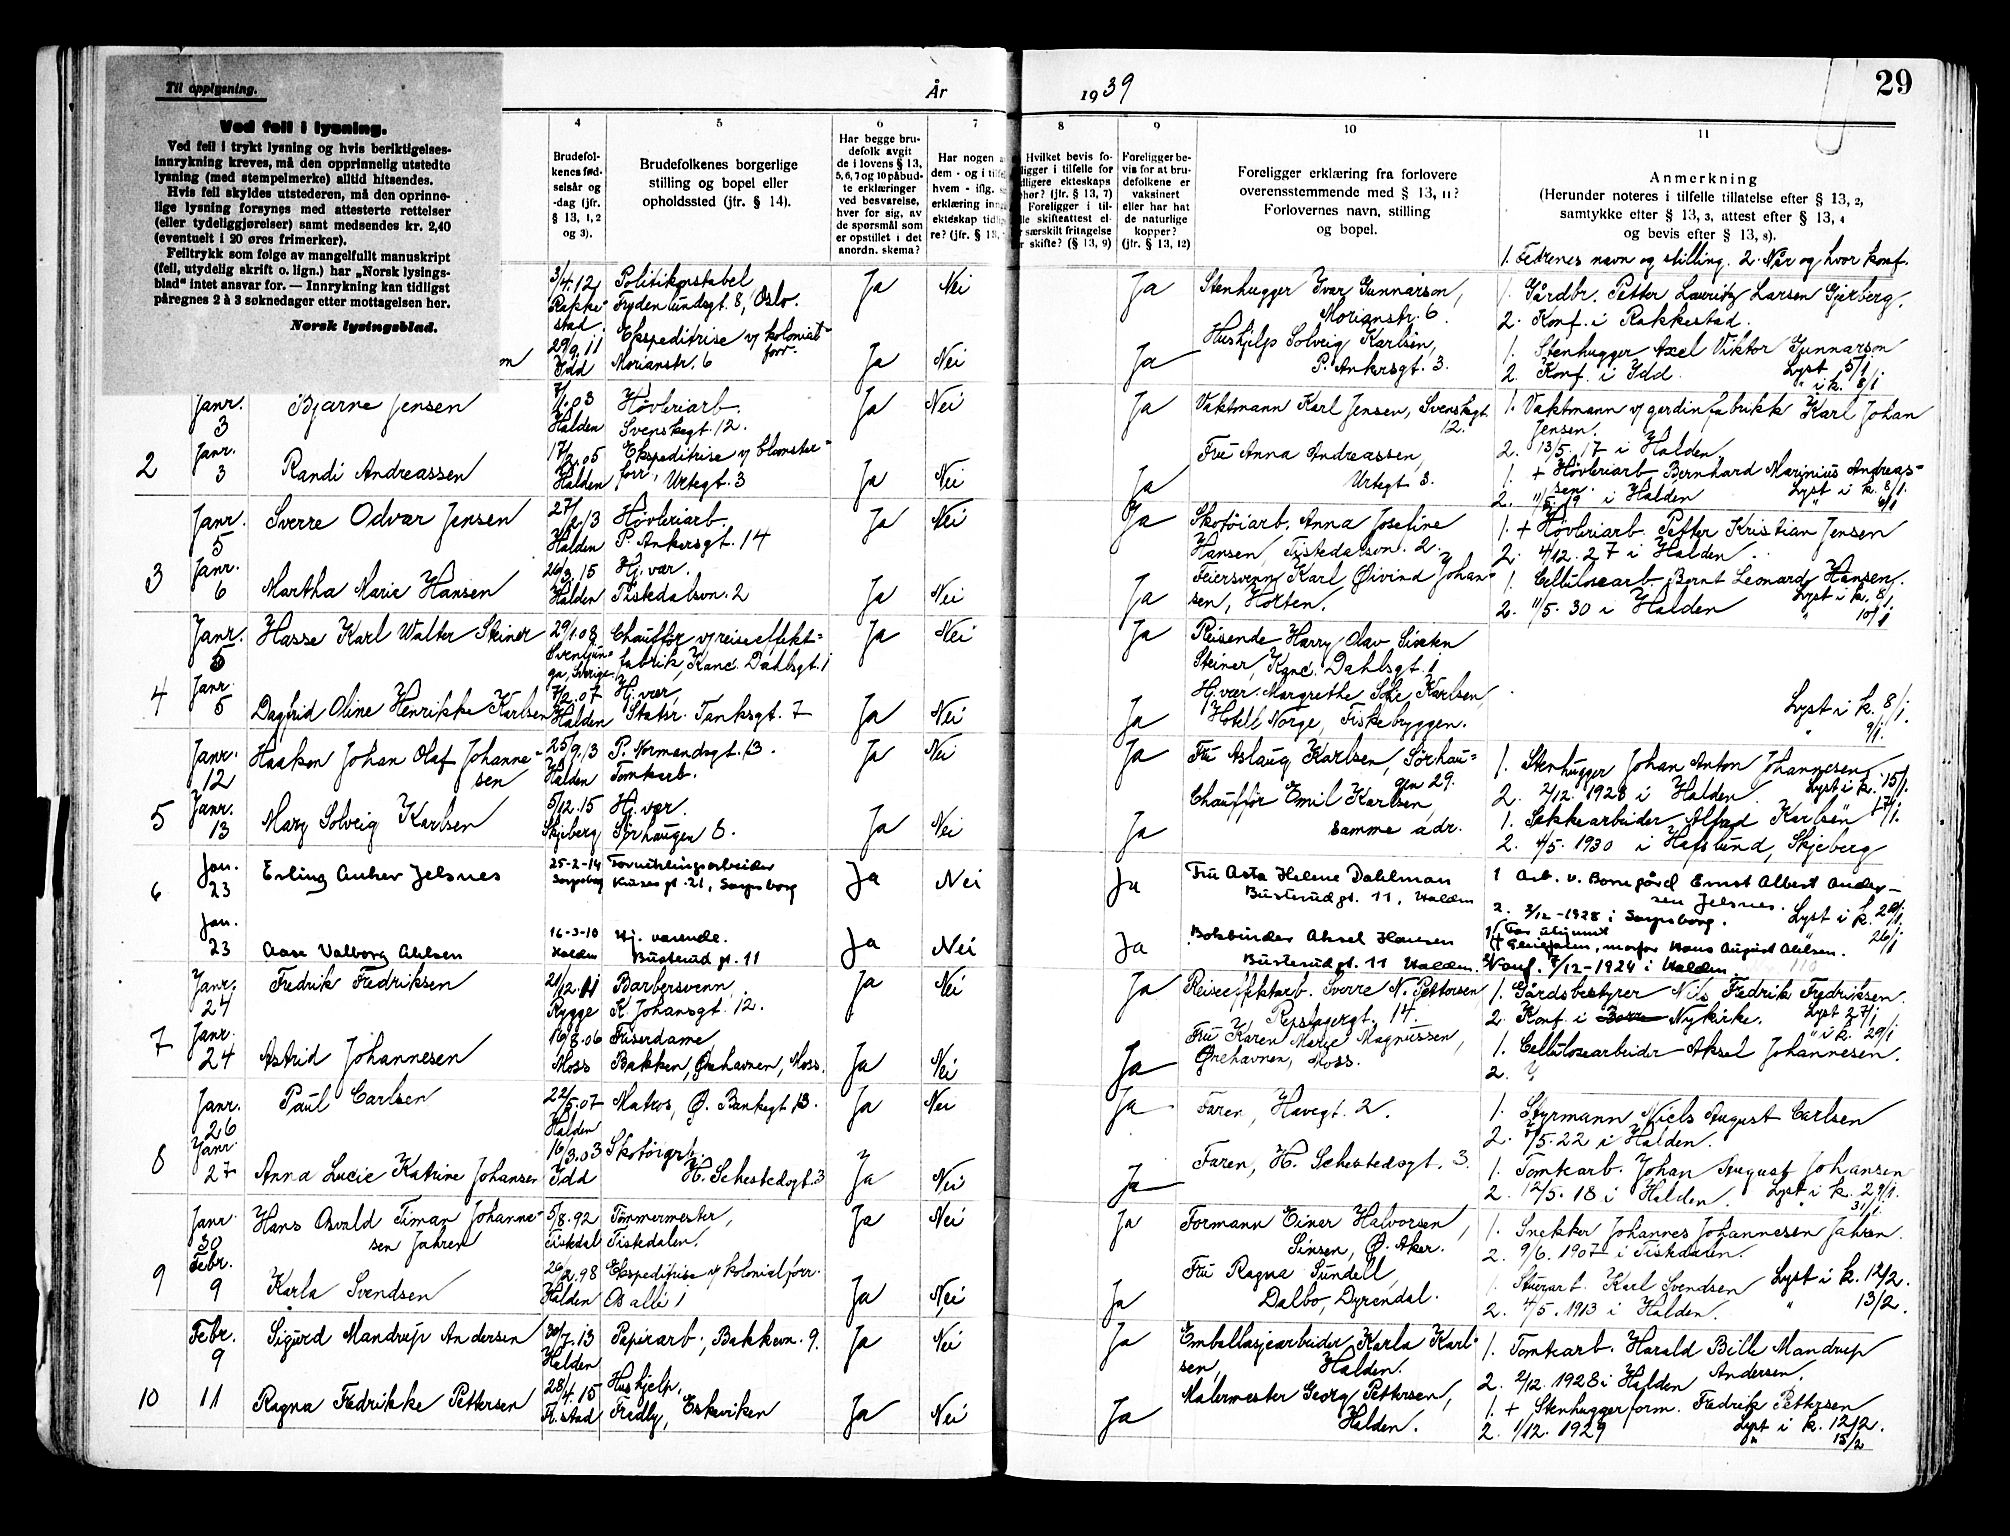 29
År
1939
Til opplysning.
Ved feil i lysning.
Ved feil i trykt lysning og hvis beriktigelses-
innrykning kreves, må den opprinnelig utstedte
lysning (med stempelmerke) alltid hitsendes.
Hvis feil skyldes utstederen, må den oprinne-
lige lysning forsynes med attesterte rettelser
(eller tydeliggjørelser) samt medsendes kr. 2,40
(eventuelt i 20 øres frimerker).
Feiltrykk som følge av mangelfullt manuskript
(feil, utydelig skrift o. lign.) har „Norsk lysings-
blad" intet ansvar for. — Innrykning kan tidligst
påregnes 2 à 3 søknedager etter mottagelsen her.
Norsk lysingsblad.
4 5 6 7 8 9 10 11
Brudefol-
kenes fød-
selsår og
-dag (jfr.
§ 13, 1, 2
og 3).
Brudefolkenes borgerlige
stilling og bopel eller
opholdssted (jfr. § 14).
Har begge bru-
defolk avgit
de i lovens § 13,
5, 6, 7 og 10 påbud-
te erklæringer
ved besvarelse,
hver for sig, av
de spørsmål som
er opstillet i det
anordn. skema?
Har nogen a
dem - og i tilf
hvem - iflg. s
erklæring inn
ekteskap tidlig
re? (jfr. § 13,
Hvilket bevis fo-
ligger i tilfelle for
dligere ekteskaps
phør? (jfr. § 13, 7)
Foreligger i til-
lle skifteattest el-
r særskilt fritagelse
r skifte? (§ 13, 9)
Foreligger be-
vis for at bru-
defolkene er
vaksinert
eller har hat
de naturlige
kopper?
(jfr. § 13, 12)
Foreligger erklæring fra forlovere
overensstemmende med § 13, 11?
Forlovernes navn, stilling
og bopel.
Anmerkning
(Herunder noteres i tilfelle tillatelse efter § 13, 2,
samtykke efter § 13, 3, attest efter § 13, 4
og bevis efter § 13, 8).
1. Fedrenes navn og stilling. 2. Når og hvor konf.
3/4.12 Politikonstabel Ja Nei Ja Stenhugger Ivar Gunnarson, 1. Gårdbr. Petter Lauritz Larsen Gjerberg.
Rakke- Frydenlundsgt. 8, Oslo. Morianstr. 6. 2. Konf. i Rakkestad.
stad.
29/9.11 Ekspeditrise v/ kolonial- Hushjelp Solveig Karlsen, 1. Stenhugger Axel Viktor Gunnarson
forr.
Idd Morianstr. 6 Ja Nei Ja P. Ankersgt. 3. 2. Konf. i Idd. Lyst 5/1
" i k. 8/1
Janr. Bjarne Jensen 7/1.03 Høvleriarb. Ja Nei Ja Vaktmann Karl Jensen, Svenskegt. 1. Vaktmann v/ gardinfabrikk Karl Johan
3 Halden Svenskegt. 12. 12. Jensen.
2. 13/5. 17 i Halden
Janr. 17/2.05 Ekspeditrise v/ blomster- Fru Anna Andreassen, 1. + Høvleriarb. Bernhard Marinius Andreas-
2 3 Randi Andreassen Halden forr., Urtegt. 3 Ja Nei Ja Urtegt. 3. sen. Lyst i k. 8/1.
2. 11/5. 19 i Halden " 6/1
Janr. Sverre Odvar Jensen 27/2.13 Høvleriarb. Ja Nei Ja Skotøiarb. Anna Josefine 1. + Høvleriarb. Petter Kristian Jensen
5 Halden P. Ankersgt. 14 Hansen, Tistedalsvn. 2. 2. 4/12. 27 i Halden.
Janr. 26/3.15 Hj.vær. Feiersvenn Karl Øivind Johan- 1. Cellulosearb. Bernt Leonard Hansen.
3 6 Martha Marie Hansen Halden Tistedalsvn. 2 Ja Nei Ja sen, Horten. 2. 11/5. 30 i Halden Lyst i k. 8/1
" 10/1
Janr. Hasse Karl Walter Steiner 29/1.08 Chauffør v/ reiseeffekt- Ja Nei Ja Reisende Harry Olav Sixten
5 Svenljun- fabrik, Kanc. Dahlsgt. 1 Steiner, Kanc. Dahlsgt. 1
ga, Sverige.
Janr. 7/2.07 Hj.vær, Hj.vær. Margrethe Karlsen,
4 5 Dagfrid Oline Henrikke Karlsen Halden Statsr. Tanksgt. 7 Ja Nei Ja Hotell Norge, Fiskebryggen. Lyst i k. 8/1.
" 9/1.
Janr. Haakon Johan Olaf Johanne- 25/9.13 P. Normandsgt. 13. Ja Nei Ja Fru Aslaug Karlsen, Sørhau- 1. Stenhugger Johan Anton Johannesen
12 sen Halden Tomtearb. gen 29. 2. 2/12. 1928 i Halden. Lyst i k. 15/1.
Janr. 5/12.15 Hj.vær. Chauffør Emil Karlsen, 1. Sekkearbeider Alfred Karlsen " 17/1.
5 13 Mary Solveig Karlsen Skjeberg Sørhaugen 8. Ja Nei Ja samme adr. 2. 4/5. 1930 i Hafslund, Skjeberg
Jan. Erling Anker Jelsnes 25-2-14 Forniklingsarbeider Ja Nei Ja Fru Asta Helene Dahlman 1 Arb. v. Borregård Ernst Albert Ander-
6 23 Sarpsborg Kuløs gt. 21, Sarpsborg Busterud gt. 11, Halden sen Jelsnes.
2. 2/12-1928 i Sarpsborg. Lyst i k. 29/1.
Jan. 16-3-10 Hj. værende. Bokbinder Aksel Hansen 26/1
23 Aase Valborg Ahlsen Halden Busterud gt. 11 Ja Nei Ja Busterudgt. 11 Halden. morfar Hans August Ahlsen.
Konf. 7/12-1924 i Halden
Janr. Fredrik Fredriksen 21/12.11 Barbersvenn Ja Nei Ja Reiseeffektarb. Sverre N. Pettersen 1. Gårdsbestyrer Nils Fredrik Fredriksen.
24 Rygge K. Johansgt. 12. Repslagergt. 14. 2. Konf. i Borre Nykirke. Lyst 27/1
Janr. 16/8.06 Friserdame, Fru Karen Marie Magnussen, " i k. 29/1
7 24 Astrid Johannesen Moss Bakken, Ørehavnen, Moss. Ja Nei Ja Ørehavnen, Moss. 1. Cellulosearbeider Aksel Johannesen.
2. ?
Janr. Paul Carlsen 22/5.07 Matros, Ø. Bankegt. 13. Ja Nei Ja Faren, Havegt. 2. 1. Styrmann Niels August Carlsen
26 Halden 2. 7/5. 22 i Halden.
Janr. 16/3.03 Skotøiarb. Faren, H. Sehestedsgt. 3. 1. Tomtearb. Johan August Johansen
8 27 Anna Lucie Katrine Johansen Idd H. Sehestedsgt. 3 Ja Nei Ja 2. 12/5. 18 i Halden. Lyst i k. 29/1.
" 31/1.
Janr. Hans Osvald Timar Johanne- 5/8.92 Tømmermester, Ja Nei Ja Formann Einar Halvorsen, 1. Snekker Johannes Johannesen Jahren.
30 sen Jahren Tistedal Tistedalen. Sinsen, Ø. Aker. 2. 9/6. 1907 i Tistedalen.
Febr. 26/2.98 Ekspeditrise v/ kolonialforr. Fru Ragna Sundell, 1. Stuerarb. Karl Svendsen Lyst i k. 12/2.
9 9 Karla Svendsen Halden Os allé 1 Ja Nei Ja Dalbo, Dyrendal. 2. 4/5. 1913 i Halden. " 13/2.
Febr. Sigurd Mandrup Andersen 30/7.13 Papirarb., Bakkevn. 9. Ja Nei Ja Emballasjearbeider Karla Karl- 1. Tomtearb. Harald Bille Mandrup
9 Halden sen, Halden. Andersen.
2. 2/12. 1928 i Halden
28/4.15 Hushjelp, Malermester Georg Pettersen, 1. + Stenhuggerform. Fredrik Pettersen
10 11 Ragna Fredrikke Pettersen Fr.stad Fredly, Eskeviken Ja Nei Ja Halden. 2. 1/12. 1929 Lyst i k. 12/2.
" 15/2